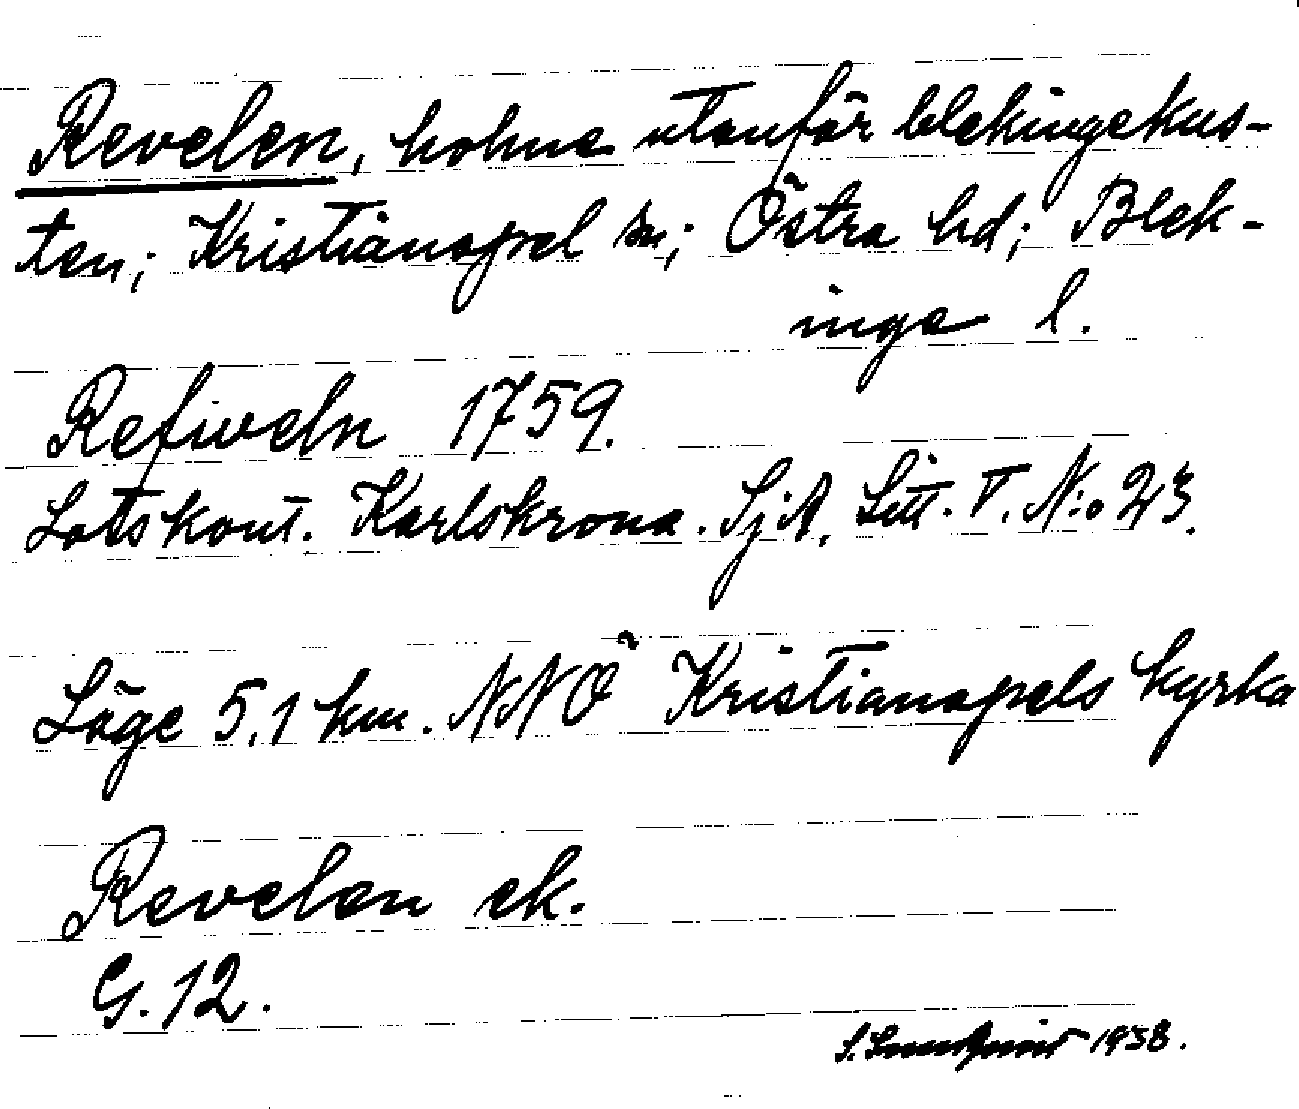 Revelen, holme utanför blekingekus-
ten; Kristianopel sn; Östra hd; Blek-
inge l.
Refiweln 1759.
Lotskont. Karlskrona. SjA. Litt. V. N:o 23.
Läge 5,1 km. NNÖ Kristianopels kyrka
Revelen ek.
G. 12.
S. 1938.